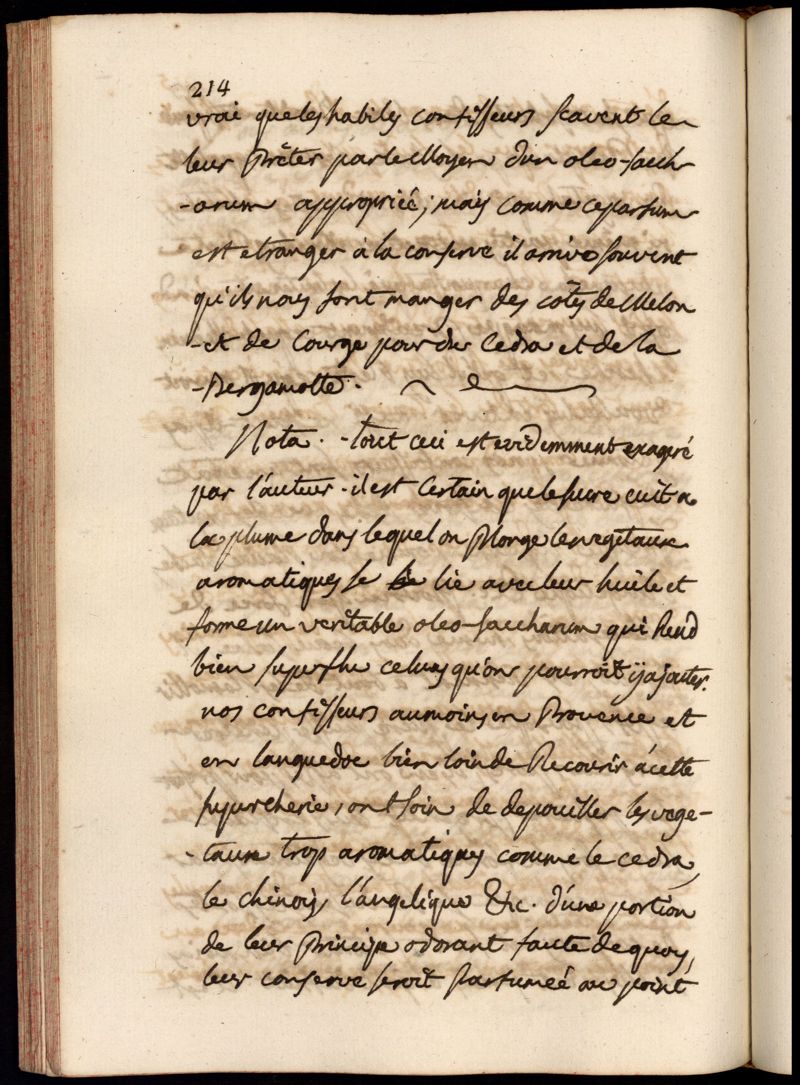 214
vrai que les habiles confisseurs scavent le
leur Prêter par le Moyen d'un oleo-sacch
-arum approprieé; mais comme ce parfum
est etranger à la conserve il arrive souvent
qu'ils nous font manger des cotês de Melon
-et de Courge pour du Cedra et de la
-Bergamotte.
Nota. -tout ceci est evidemment exageré
par l'auteur. il est Certain que le sucre cuit a
la plume dans lequel on Plonge les vegetaux
aromatiques se lie avec leur huile et
forme un veritable oleo-saccharum qui Rend
bien superflu celuy qu'on pourroit y ajouter.
nos confisseurs aumoins en Provence et
en languedoc bien loin de Recourir á cette
supercherie, ont soin de depouiller les vege-
-taux trop aromatiques comme le cedra,
le chinois, l'angelique &c. d'une portion
de leur Principe odorant faute de quoy,
leur conserve seroit Parfumeé au point